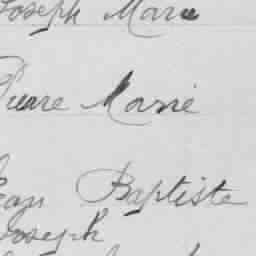 Joseph Marie
Pierre Marie
Jean Baptiste
Joseph